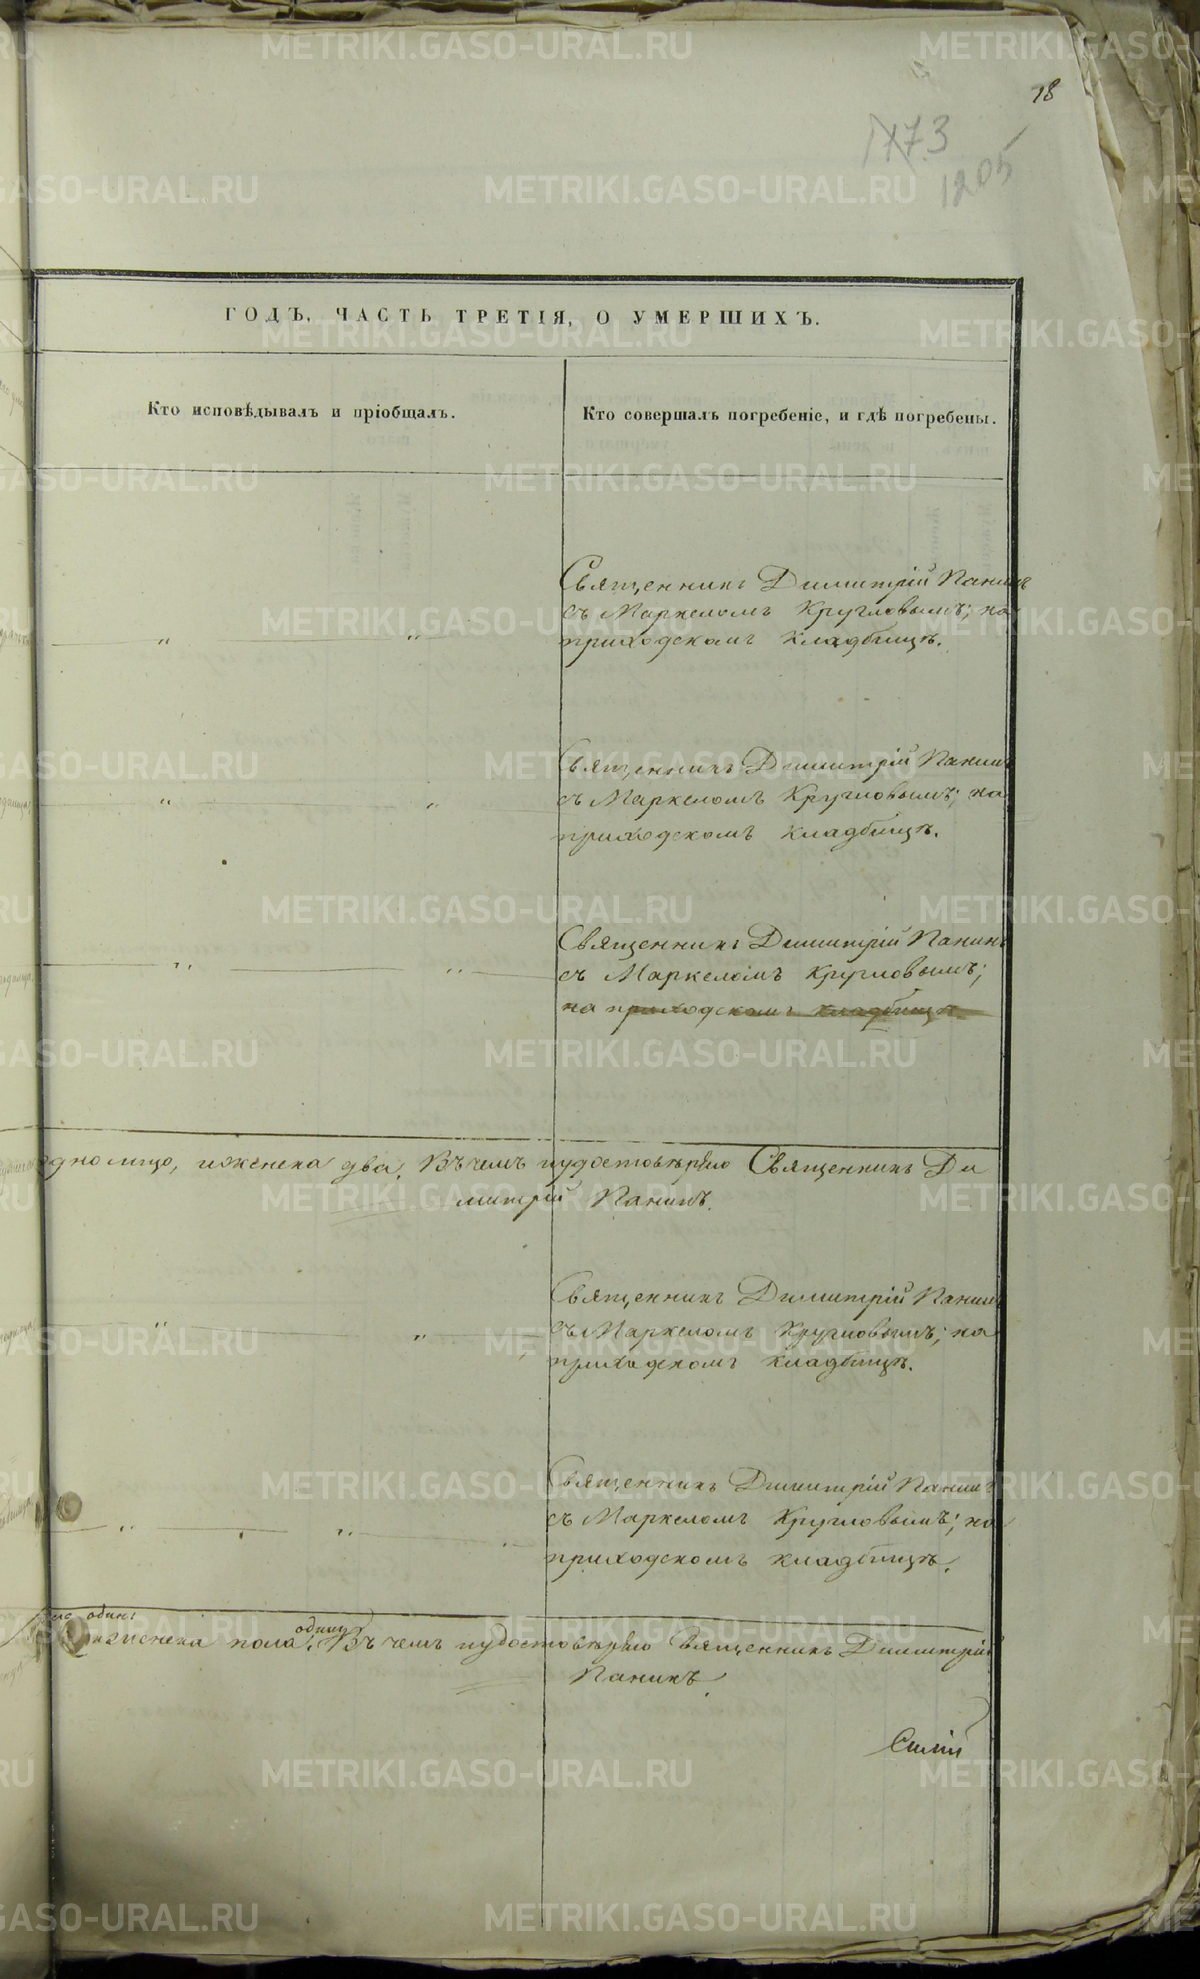 18
1773
1205
ГОДЪ, ЧАСТЬ ТРЕТІЯ, О УМЕРШИХЪ.
Кто исповѣдывалъ и пріобщалъ.
Кто совершалъ погребеніе, и гдѣ погребены.
Священникъ Димитрій Панинъ
съ Маркеломъ Кругловымъ; на
приходскомъ кладбищѣ.
Священникъ Димитрій Панинъ
съ Маркеломъ Кругловымъ; на
приходскомъ кладбищѣ.
Священникъ Димитрій Панинъ
съ Маркеломъ Кругловымъ;
на приходскомъ кладбищѣ
одно лицо, и женска два. Въ чемъ и удостовѣряю Священникъ Ди
митрій Панинъ.
Священникъ Димитрій Панинъ
съ Маркеломъ Кругловымъ; на
приходскомъ кладбищѣ.
Священникъ Димитрій Панинъ
съ Маркеломъ Кругловымъ; на
приходскомъ кладбищѣ.
одинъ
и женска пола одинъ. Въ чемъ и удостовѣряю Священникъ Димитрій
Панинъ.
METRIKI.GASO-URAL.RU